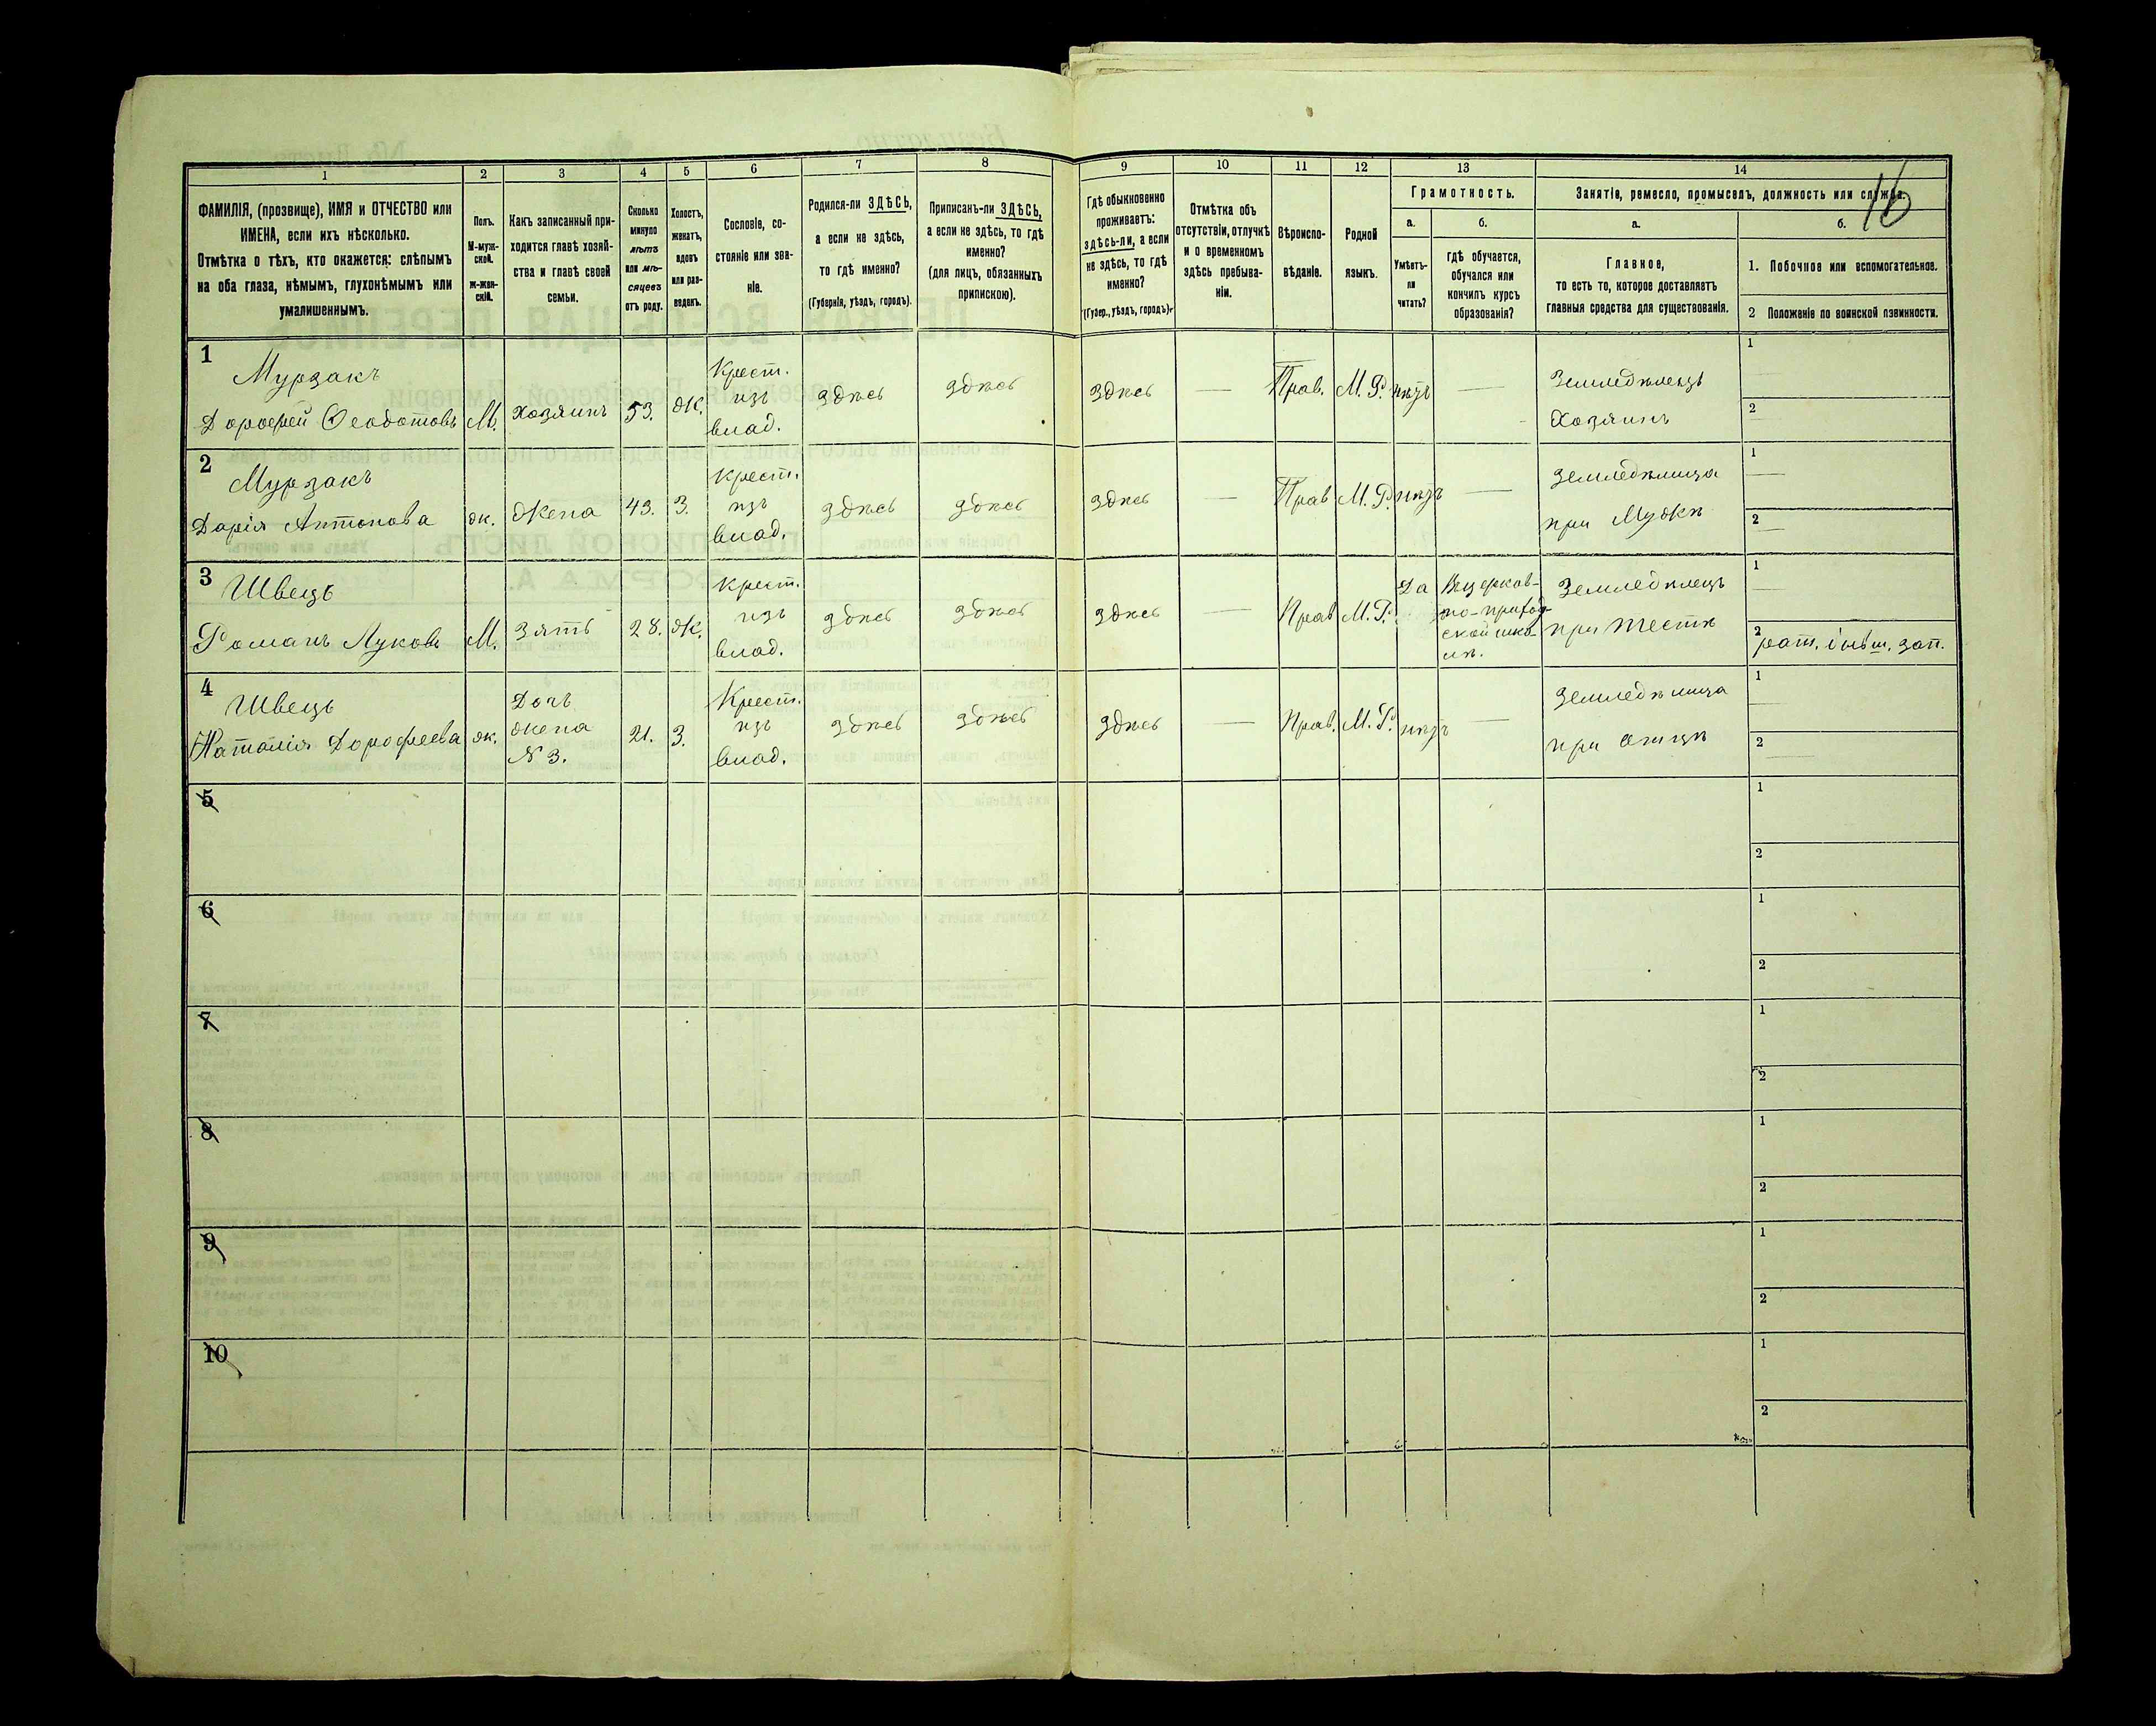 16
1
2
3
4
5
6
7
8
9
10
11
12
13
14
ФАМИЛІЯ, (прозвище), ИМЯ и ОТЧЕСТВО или
ИМЕНА, если ихъ нѣсколько.
Отмѣтка о тѣхъ, кто окажется: слѣпымъ
на оба глаза, нѣмымъ, глухонѣмымъ или
умалишеннымъ.
Полъ.
М-муж-
ской.
ж-жен-
скій.
Какъ записанный при-
ходится главѣ хозяй-
ства и главѣ своей
семьи.
Сколько
минуло
лѣтъ
или мѣ-
сяцевъ
отъ роду.
Холостъ,
женатъ,
вдовъ
или раз-
веденъ.
Сословіе, со-
стояніе или зва-
ніе.
Родился-ли ЗДѢСЬ,
а если не здѣсь,
то гдѣ именно?
(Губернія, уѣздъ, городъ).
Приписанъ-ли ЗДѢСЬ,
а если не здѣсь, то гдѣ
именно?
(для лицъ, обязанныхъ
припискою).
Гдѣ обыкновенно
проживаетъ:
здѣсь-ли, а если
не здѣсь, то гдѣ
именно?
(Губер., уѣздъ, городъ).
Отмѣтка объ
отсутствіи, отлучкѣ
и о временномъ
здѣсь пребыва-
ніи.
Вѣроиспо-
вѣданіе.
Родной
языкъ.
Грамотность.
а.
Умѣетъ-
ли
читать?
б.
гдѣ обучается,
обучался или
кончилъ курсъ
образованія?
Занятіе, ремесло, промыселъ, должность или служба.
а.
Главное,
то есть то, которое доставляетъ
главныя средства для существованія.
б.
1. Побочное или вспомогательное.
2 Положеніе по воинской повинности.
1
Мурзакъ
Дорофей Ѳеодотовъ
М.
хозяинъ
53.
Ж.
Крест.
изъ
влад.
здѣсь
здѣсь
здѣсь
—
Прав.
М. Р.
нѣтъ
—
Земледѣлецъ
Хозяинъ
1
2
2
Мурзакъ
Дарія Антонова
ж.
Жена
43.
З.
Крест.
изъ
влад.
здѣсь
здѣсь
здѣсь
—
Прав
М. Р.
нѣтъ
—
Земледѣлица
при Мужѣ
1
2
3
Швецъ
Романъ Луковъ
М.
Зять
28.
Ж.
Крест.
изъ
влад.
здѣсь
здѣсь
здѣсь
—
Прав
М. Р.
Да
Вцерков-
но-приход-
ской шко-
лѣ.
Земледѣлецъ
при тестѣ
1
2
рат.
зап.
4
Швецъ
Наталія Дорофеева
ж.
Дочь
жена
N 3.
21.
З.
Крест.
изъ
влад.
здѣсь
здѣсь
здѣсь
—
Прав.
М. Р.
нѣтъ
—
Земледѣлица
при отцѣ
1
2
5
1
2
6
1
2
7
1
2
8
1
2
9
1
2
10
1
2